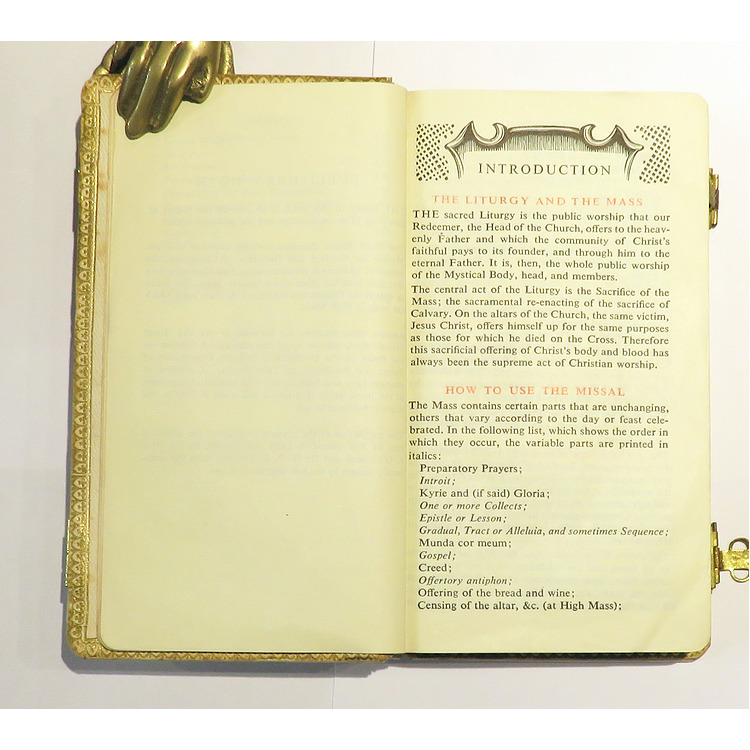 INTRODUCTION
THE LITURGY AND THE MASS
THE sacred Liturgy is the public worship that our
Redeemer, the Head of the Church, offers to the heav-
enly Father and which the community of Christ's
faithful pays to its founder, and through him to the
eternal Father. It is, then, the whole public worship
of the Mystical Body, head, and members.
The central act of the Liturgy is the Sacrifice of the
Mass; the sacramental re-enacting of the sacrifice of
Calvary. On the altars of the Church, the same victim,
Jesus Christ, offers himself up for the same purposes
as those for which he died on the Cross. Therefore
this sacrificial offering of Christ's body and blood has
always been the supreme act of Christian worship.
HOW TO USE THE MISSAL
The Mass contains certain parts that are unchanging,
others that vary according to the day or feast cele-
brated. In the following list, which shows the order in
which they occur, the variable parts are printed in
italics:
Preparatory Prayers;
Introit;
Kyrie and (if said) Gloria;
One or more Collects;
Epistle or Lesson;
Gradual, Tract or Alleluia, and sometimes Sequence;
Munda cor meum;
Gospel;
Creed;
Offertory antiphon;
Offering of the bread and wine;
Censing of the altar, &c. (at High Mass);